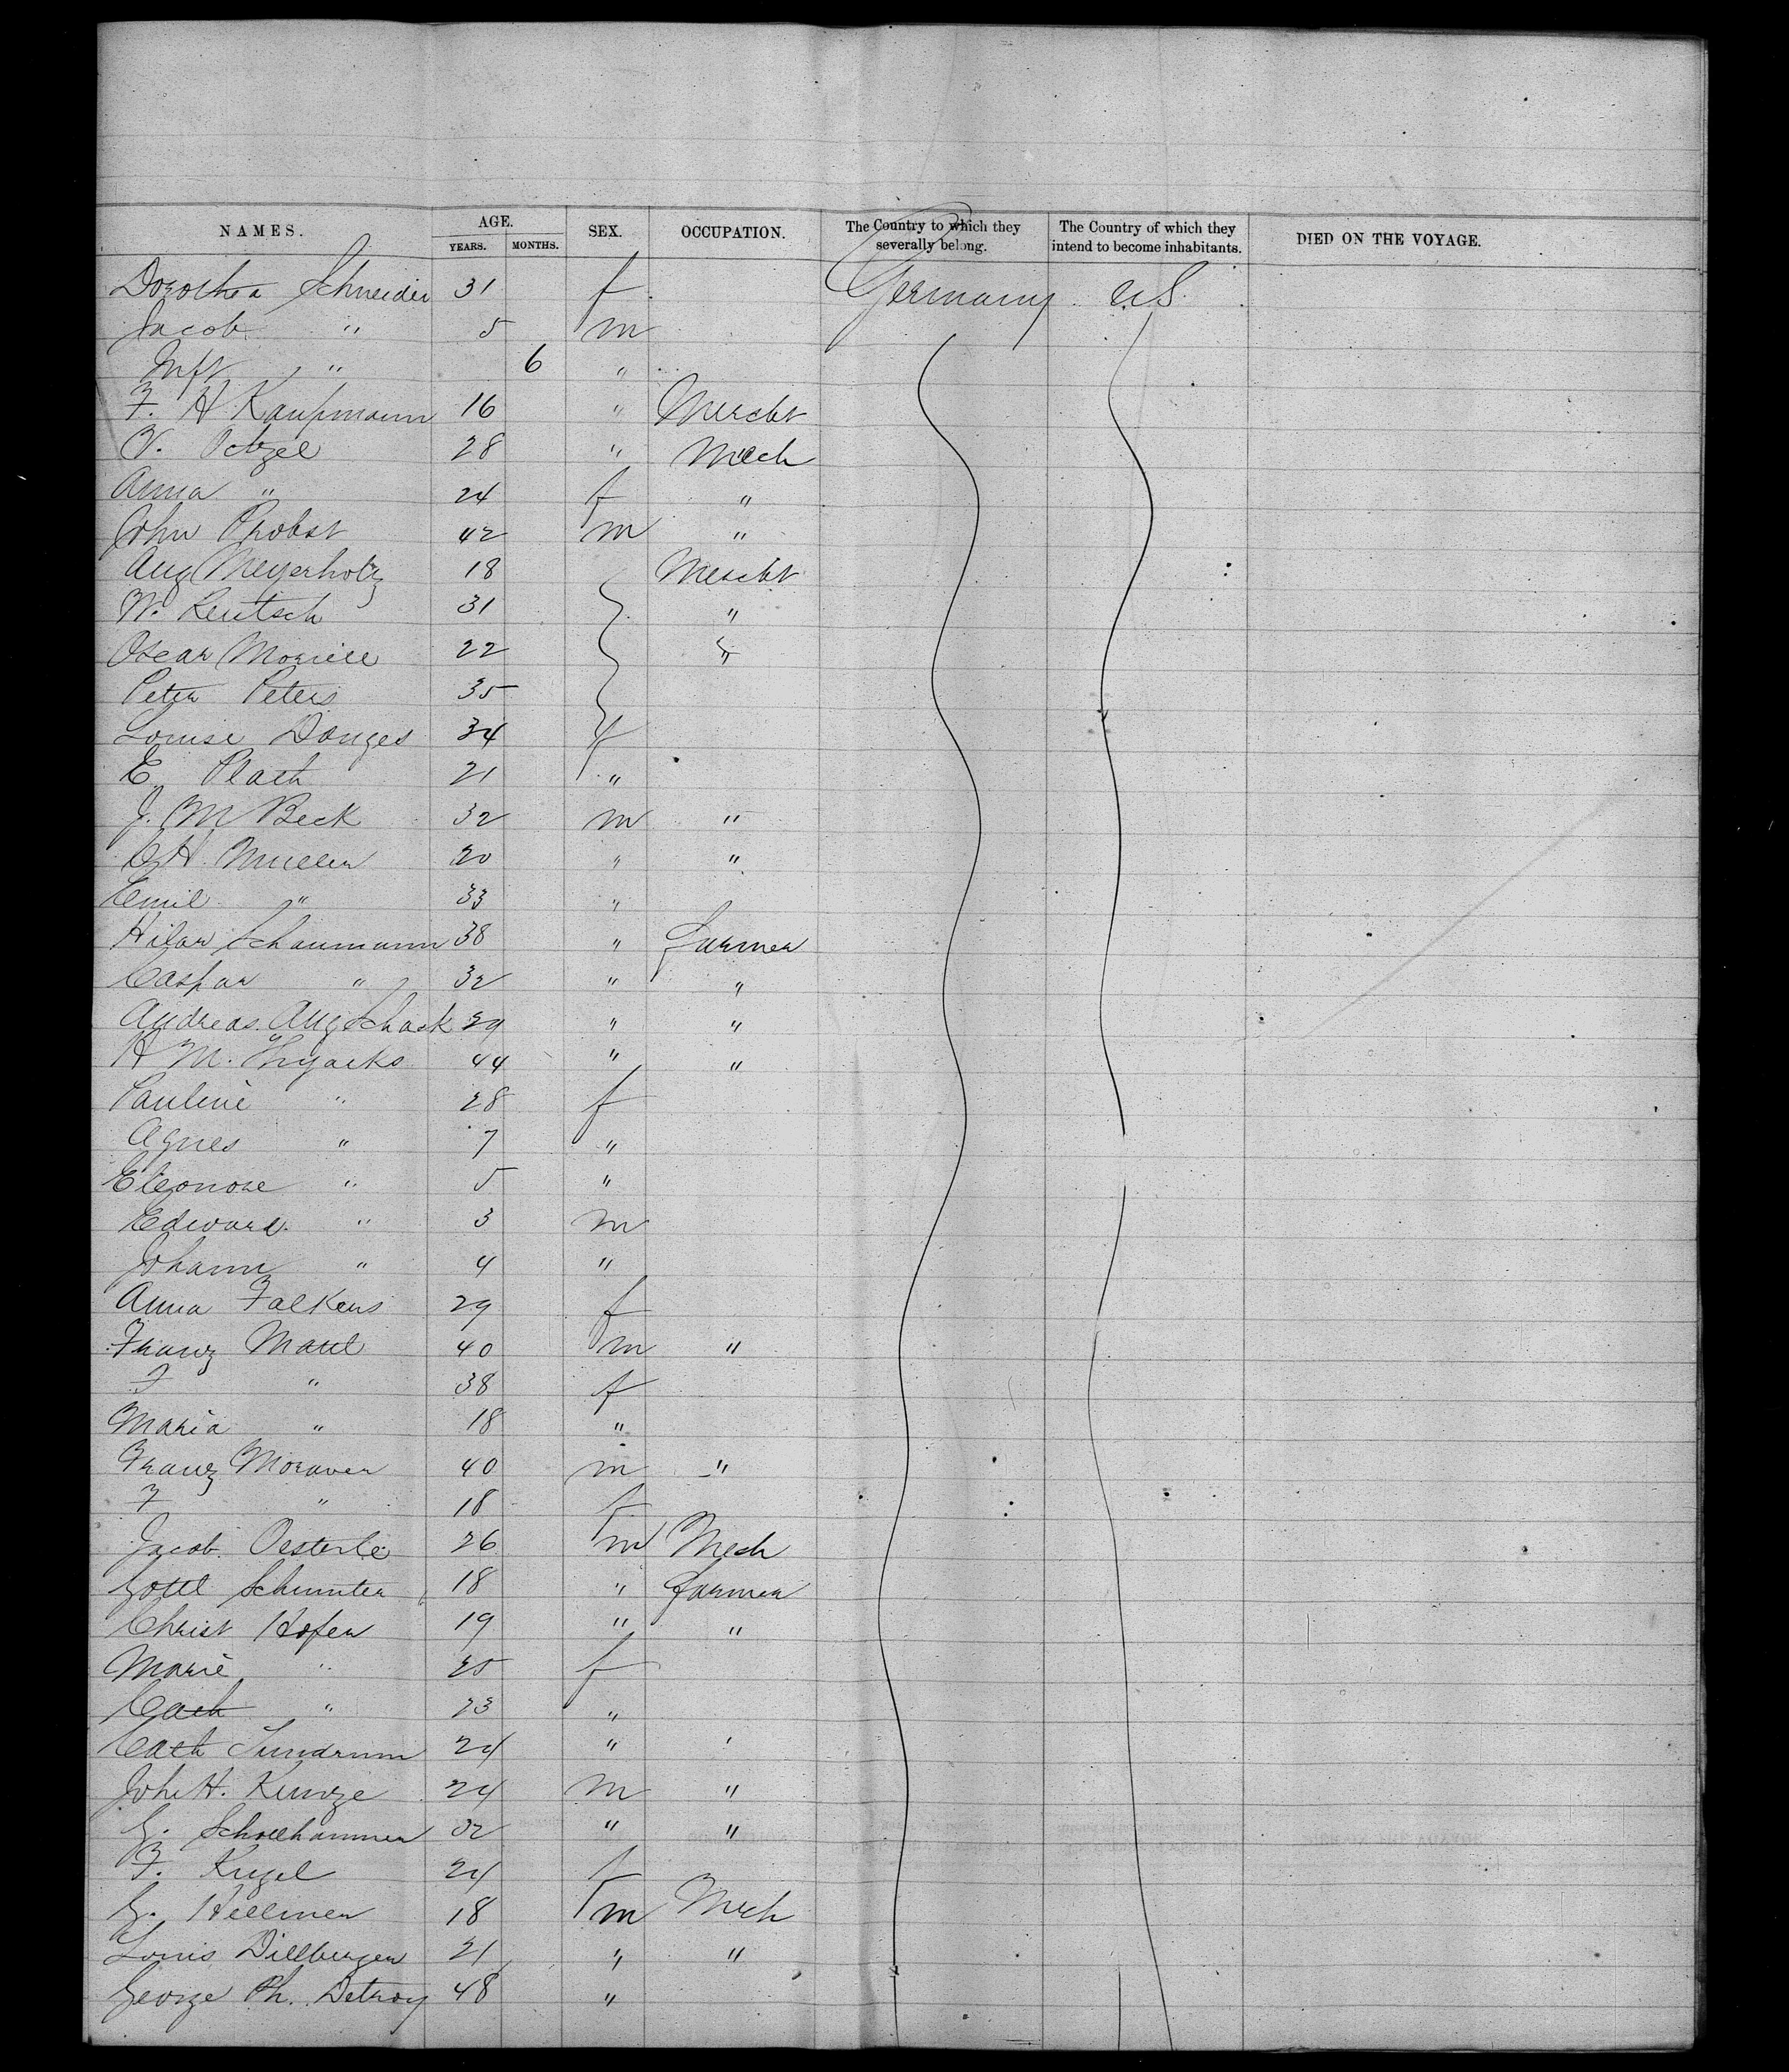 NAMES. AGE. YEARS. MONTHS. SEX. OCCUPATION. The Country to which they severally belong. The Country of which they intend to become inhabitants. DIED ON THE VOYAGE.
Dorothea Schneider 31 f Germany U.S.
Jacob " 5 m
Inft " 6 "
F. H Kaufmann 16 " Mercht
V. Oetzel 28 " Mech
Anna " 24 f "
John Probst 42 m "
Aug Meyerholz 18 Mercht
W. Rentsch 31 "
Oscar Morrill 22 "
Peter Peters 35
Louise Donges 34 f
E. Plath 21 "
J. M Beck 32 m "
H. Muller 20 " "
Emil " 33 "
Hilar Schaumann 38 " farmer
Caspar " 32 " "
Andreas Aug Schack 29 " "
H M. 44 " "
Pauline " 28 f
Agnes " 7 "
Eleonore " 5 "
Edward " 3 m
Johann " 4 "
Anna Falkens 29 f
Franz Matl 40 m "
F " 38 f
Maria " 18 "
Franz Moraver 40 m "
F " 18 f
Jacob Oesterle 26 m Mech
Gottl 18 " farmer
Christ Hofer 19 " "
Marie " 25 f
Cath " 23 "
Cath Sundrum 24 "
Joh H. Kunze 24 m "
G. Schollhammer 32 " "
F. Kugel 24 f
G. Hellmer 18 m Mech
Louis Dillburger 21 " "
George Ph. Detroy 48 "